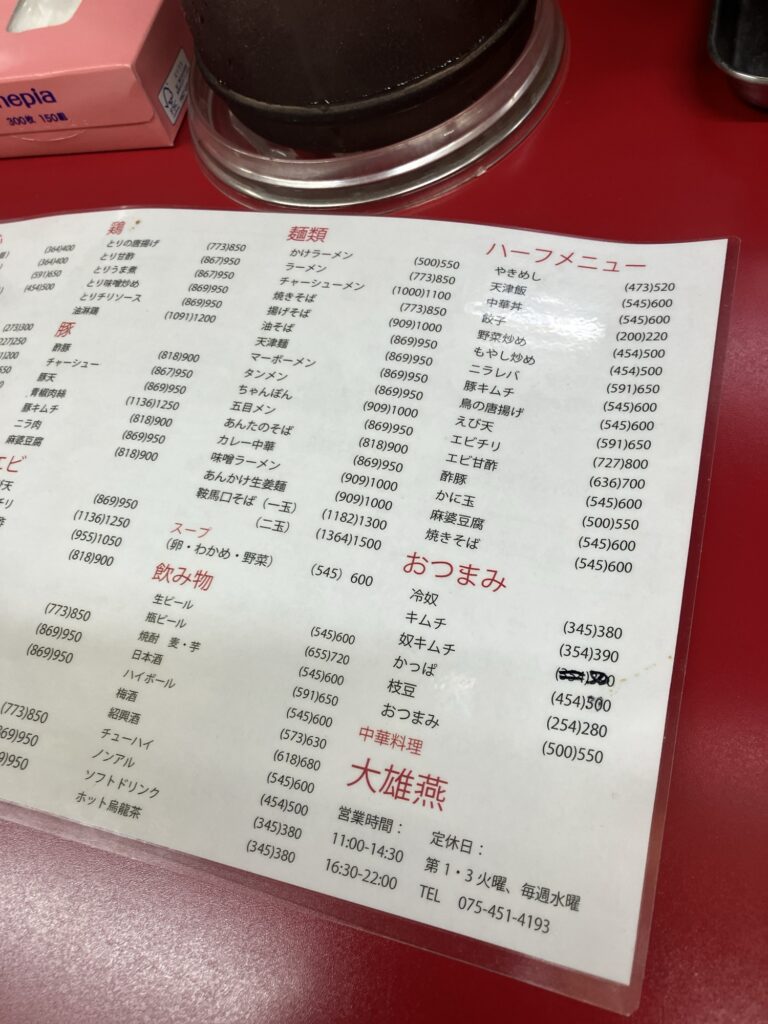 nepia
300枚 150組
(364)400
(364)400
(591)650
(454)500
(273)300
(227)250
エビ
(869)950
(1136)1250
(955)1050
(818)900
(773)850
(869)950
(869)950
(773)850
(869)950
鶏
とりの唐揚げ (773)850
とり甘酢 (867)950
とりうま煮 (867)950
とり味噌炒め (869)950
とりチリソース (869)950
油淋鶏 (1091)1200
豚
酢豚 (818)900
チャーシュー (867)950
豚天 (869)950
青椒肉絲 (1136)1250
豚キムチ (818)900
ニラ肉 (869)950
麻婆豆腐 (818)900
麺類
かけラーメン (500)550
ラーメン (773)850
チャーシューメン (1000)1100
焼きそば (773)850
揚げそば (909)1000
油そば (869)950
天津麺 (869)950
マーボーメン (869)950
タンメン (869)950
ちゃんぽん (909)1000
五目メン (869)950
あんたのそば (818)900
カレー中華 (869)950
味噌ラーメン (909)1000
あんかけ生姜麺 (909)1000
鞍馬口そば（一玉） (1182)1300
（二玉） (1364)1500
スープ
（卵・わかめ・野菜） (545) 600
飲み物
生ビール (545)600
瓶ビール (655)720
焼酎 麦・芋 (545)600
日本酒 (591)650
ハイボール (545)600
梅酒 (573)630
紹興酒 (618)680
チューハイ (545)600
ノンアル (454)500
ソフトドリンク (345)380
ホット烏龍茶 (345)380
ハーフメニュー
やきめし (473)520
天津飯 (545)600
中華丼 (545)600
餃子 (200)220
野菜炒め (454)500
もやし炒め (454)500
ニラレバ (591)650
豚キムチ (545)600
鳥の唐揚げ (545)600
えび天 (591)650
エビチリ (727)800
エビ甘酢 (636)700
酢豚 (545)600
かに玉 (500)550
麻婆豆腐 (545)600
焼きそば (545)600
おつまみ
冷奴 (345)380
キムチ (354)390
奴キムチ
かっぱ (454)500
枝豆 (254)280
おつまみ (500)550
中華料理
大雄燕
営業時間：
11:00-14:30
16:30-22:00
定休日：
第1・3火曜、毎週水曜
TEL 075-451-4193